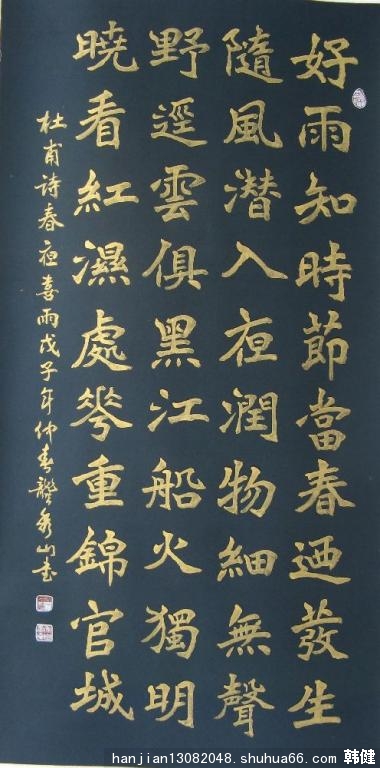 好雨知時節當春迺發生
隨風潛入夜潤物細無聲
野逕雲俱黑江船火獨明
曉看紅濕處花重錦官城
杜甫詩春夜喜雨戊子年仲春龔秀山書
hanjian13082048.shuhua66.com 韩健